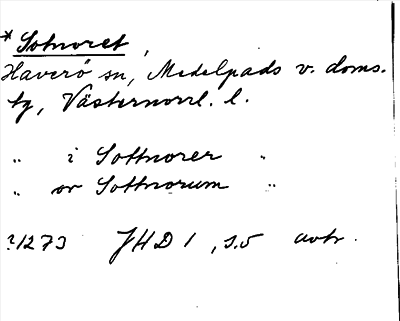 *Sotnoret,
Haverö sn, Medelpads v. doms.
tg, Västernorrl. l.
„ i Sottnorer „
„ or Sottnorum „
?1273 JHD 1, s.5 avtr.